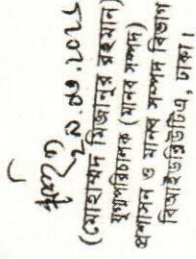 (মোহাম্মদ মিজানুর রহমান)
যুগ্মপরিচালক (মানব সম্পদ)
প্রশাসন ও মানব সম্পদ বিভাগ
বিআইডব্লিউটিএ, ঢাকা।